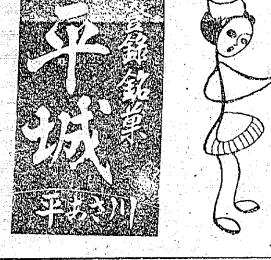 登録銘菓
平城
平あさ川